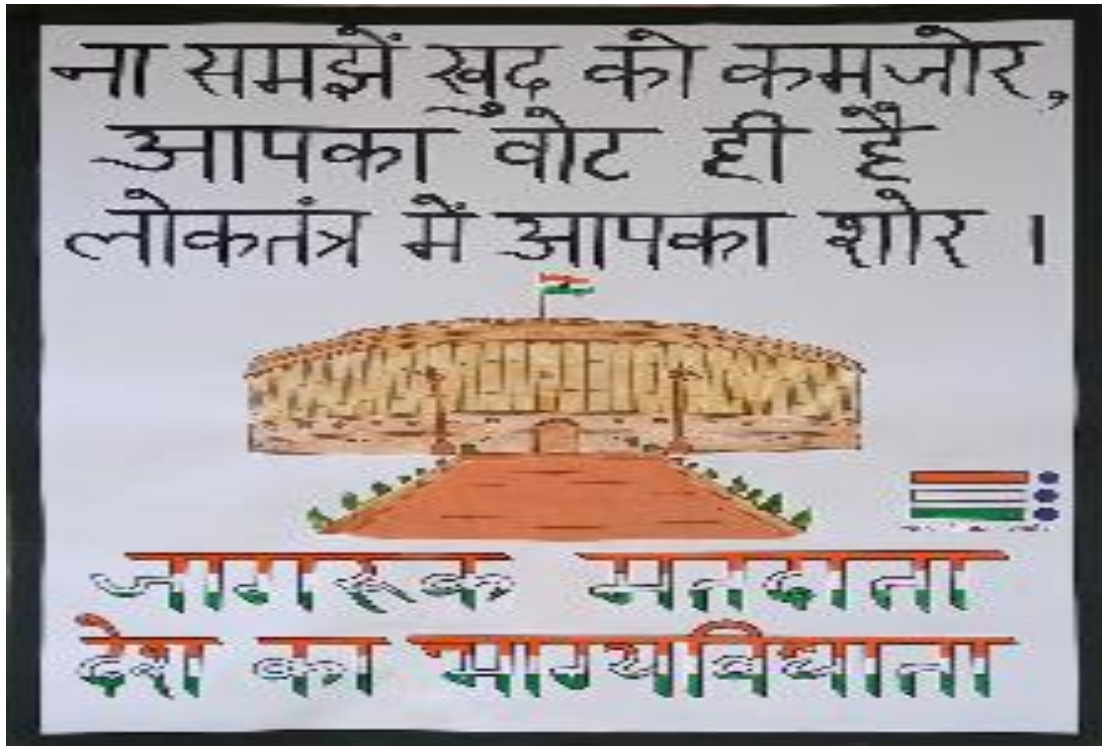 ना समझें खुद को कमजोर,
आपका वोट ही है
लोकतंत्र में आपका शोर ।
जागरूक मतदाता
देश का भाग्यविधाता